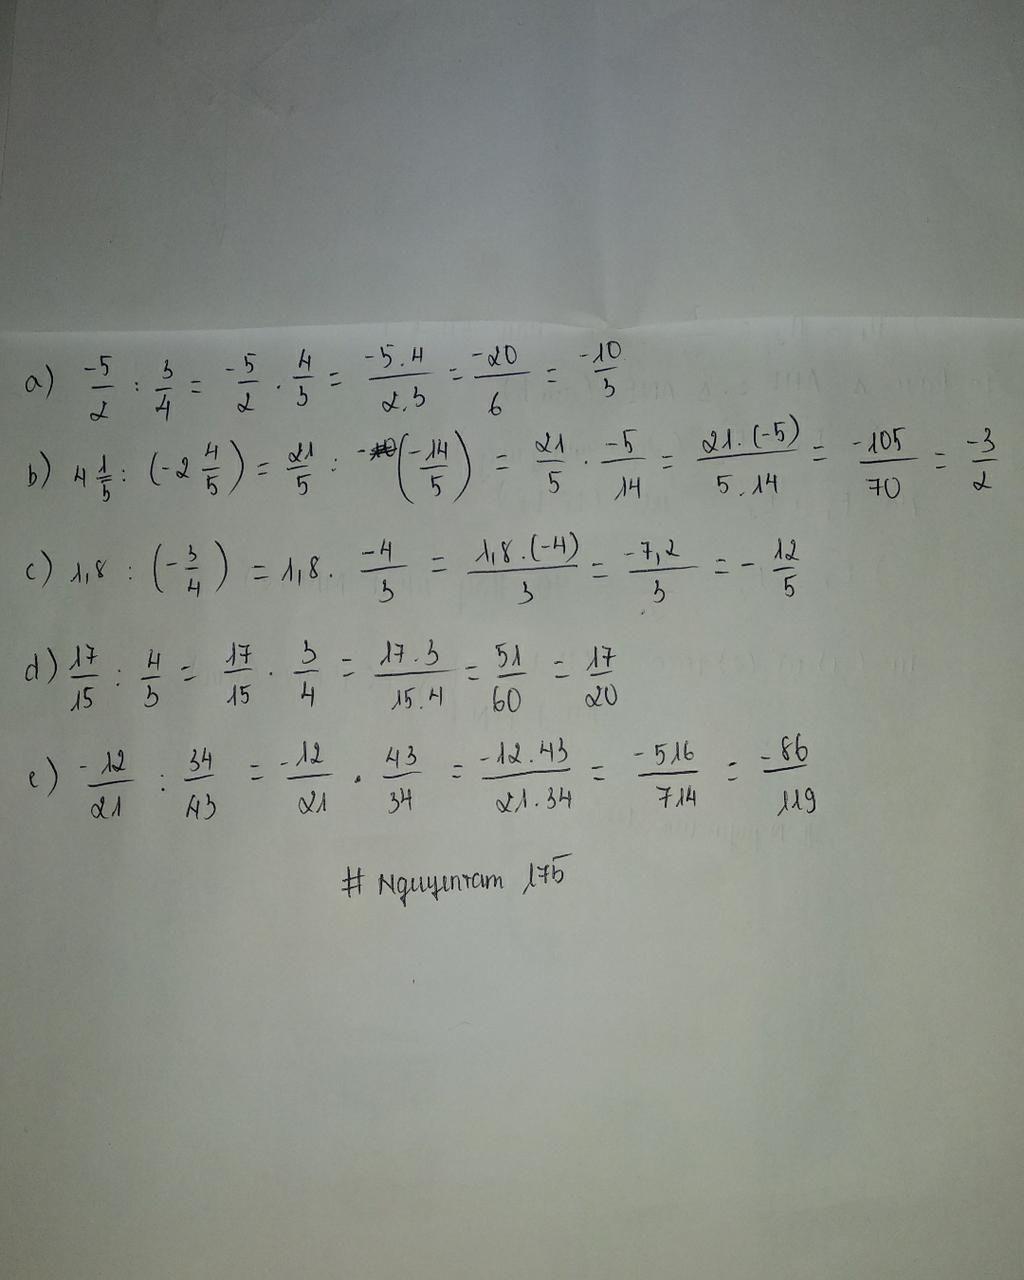 a) -5/2 : 3/4 = -5/2 . 4/3 = -5.4/2.3 = -20/6 = -10/3
b) 4 1/5 : (-2 4/5) = 21/5 : (-14/5) = 21/5 . -5/14 = 21.(-5)/5.14 = -105/70 = -3/2
c) 1,8 : (-3/4) = 1,8 . -4/3 = 1,8.(-4)/3 = -7,2/3 = - 12/5
d) 17/15 : 4/3 = 17/15 . 3/4 = 17.3/15.4 = 51/60 = 17/20
e) -12/21 : 34/43 = -12/21 . 43/34 = -12.43/21.34 = -516/714 = -86/119
# Nguyentam 175